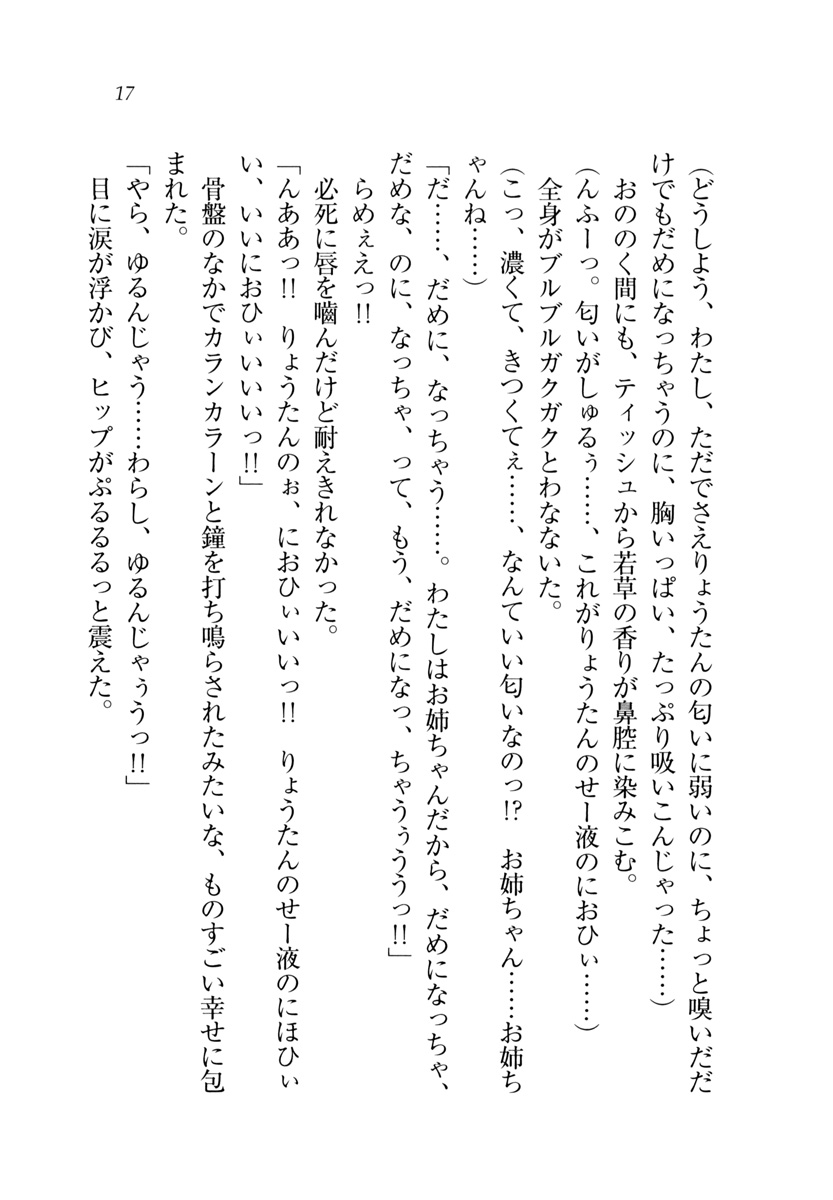 17
(どうしよう、わたし、ただでさえりょうたんの匂いに弱いのに、ちょっと嗅いだだ
けでもだめになっちゃうのに、胸いっぱい、たっぷり吸いこんじゃった……)
おののく間にも、ティッシュから若草の香りが鼻腔に染みこむ。
(んふーっ。匂いがしゅるぅ……、これがりょうたんのせー液のにおひぃ……)
全身がブルブルガクガクとわなないた。
(こっ、濃くて、きつくてぇ……、なんていい匂いなのっ!? お姉ちゃん……お姉ち
ゃんね……)
「だ……、だめに、なっちゃう……。わたしはお姉ちゃんだから、だめになっちゃ、
だめな、のに、なっちゃ、って、もう、だめになっ、ちゃうぅううっ!!」
らめぇえっ!!
必死に唇を嚙んだけど耐えきれなかった。
「んああっ!! りょうたんのぉ、におひぃいいっ!! りょうたんのせー液のにほひぃ
い、いいにおひぃいいいっ!!」
骨盤のなかでカランカラーンと鐘を打ち鳴らされたみたいな、ものすごい幸せに包
まれた。
「やら、ゆるんじゃう……わらし、ゆるんじゃぅうっ!!」
目に涙が浮かび、ヒップがぷるるるっと震えた。